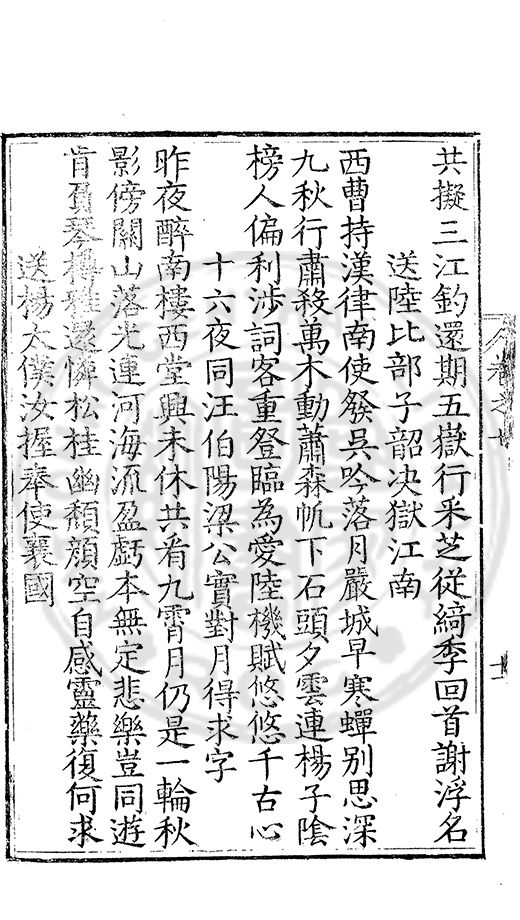 共擬三江釣還期五嶽行采芝從綺季回首謝浮名
送陸比部子韶决獄江南
西曹持漢律南使發吳吟落月嚴城早寒蟬别思深
九秋行肅殺萬木動蕭森帆下石頭夕雲連楊子陰
榜人偏利涉詞客重登臨為愛陸機賦悠悠千古心
十六夜同汪伯陽梁公實對月得求字
昨夜醉南樓西堂興未休共看九霄月仍是一輪秋
影傍關山落光連河海流盈虧本無定悲樂豈同遊
肯負琴樽雅還憐松桂幽頽顔空自感靈藥復何求
送楊太僕汝握奉使襄國
卷之
十